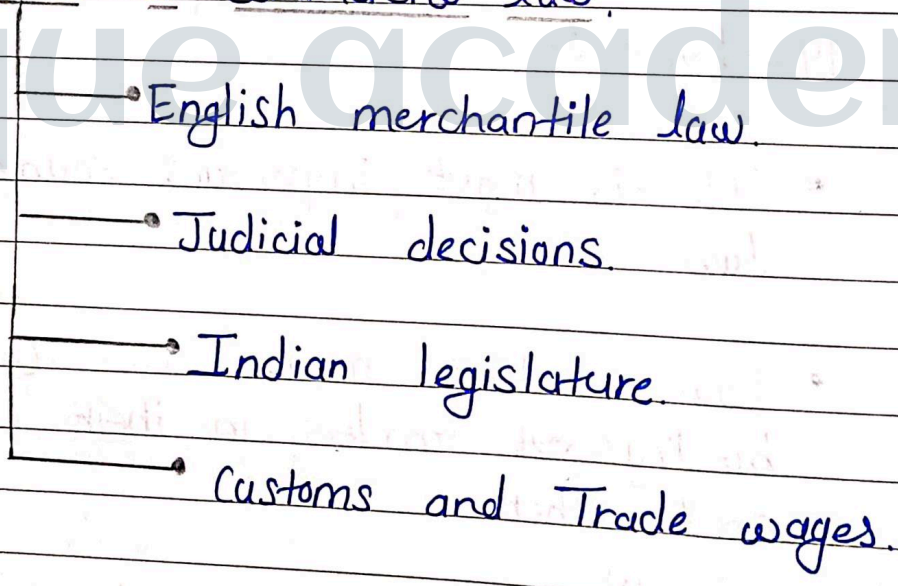 que acade
English merchantile law.
Judicial decisions.
Indian legislature.
Customs and Trade wages.